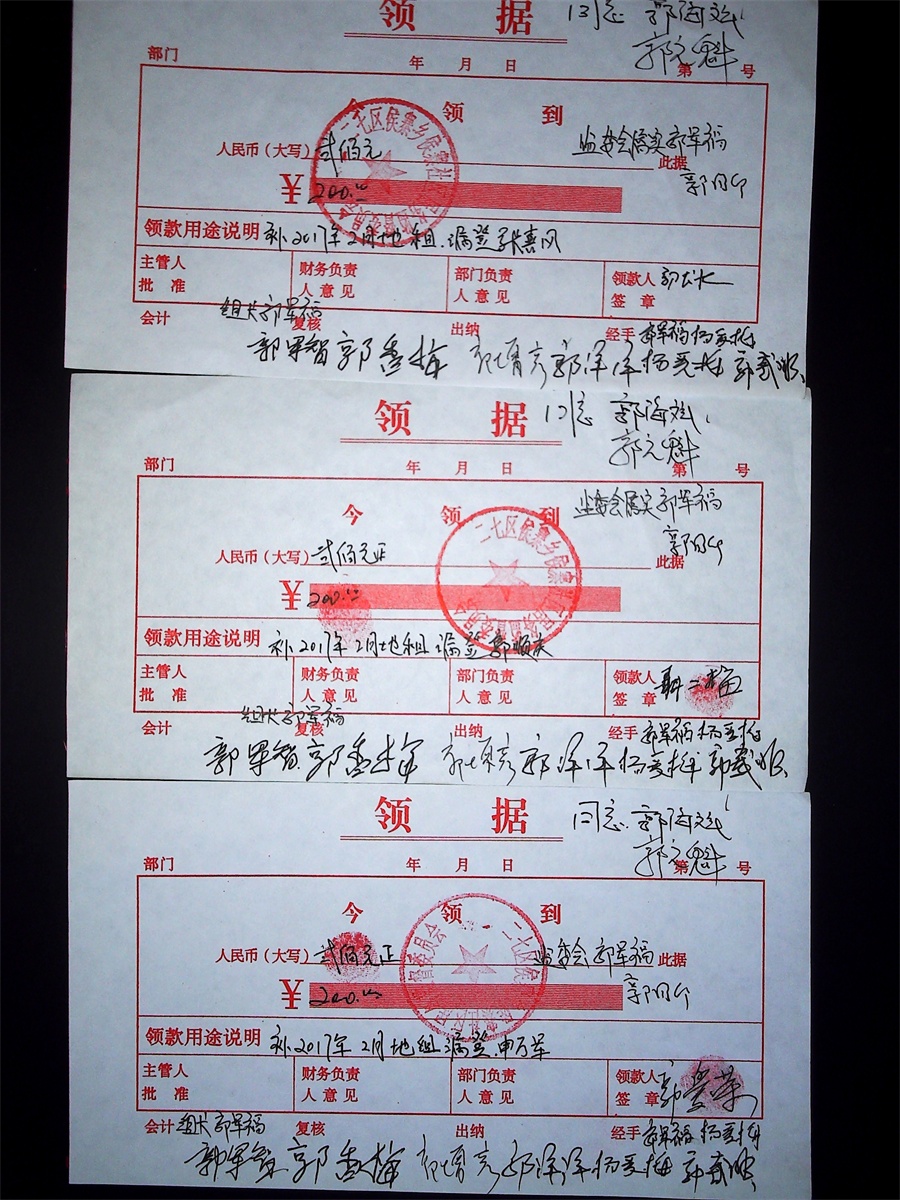 领 据
同意 郭海斌
郭元魁
部门 年 月 日 第 号
今 领 到
二七区侯寨乡侯寨社区居务监督委员会
监委会属实郭军福
人民币（大写）贰佰元 此据
¥ 200.00
领款用途说明 补2017年2月地组.漏登
主管人 财务负责 部门负责 领款人
批 准 人意见 人意见 签 章
组长郭军福
会计 复核 出纳 经手 郭军福
郭军智 郭香梅 郭洋洋
领 据
同意 郭海斌
郭元魁
部门 年 月 日 第 号
今 领 到
二七区侯寨乡侯寨社区居务监督委员会
监委会属实郭军福
人民币（大写）贰佰元正 此据
¥ 200.00
领款用途说明 补2017年2月地组.漏登
主管人 财务负责 部门负责 领款人
批 准 人意见 人意见 签 章
组长郭军福
会计 复核 出纳 经手 郭军福
郭军智 郭香梅 郭洋洋
领 据
同意 郭海斌
郭元魁
部门 年 月 日 第 号
今 领 到
人民币（大写）贰佰元正 监委会郭军福 此据
¥ 200.00
领款用途说明 补2017年2月地组.漏登.申万军
主管人 财务负责 部门负责 领款人
批 准 人意见 人意见 签 章
会计 组长郭军福 复核 出纳 经手 郭军福
郭军智 郭香梅 郭洋洋